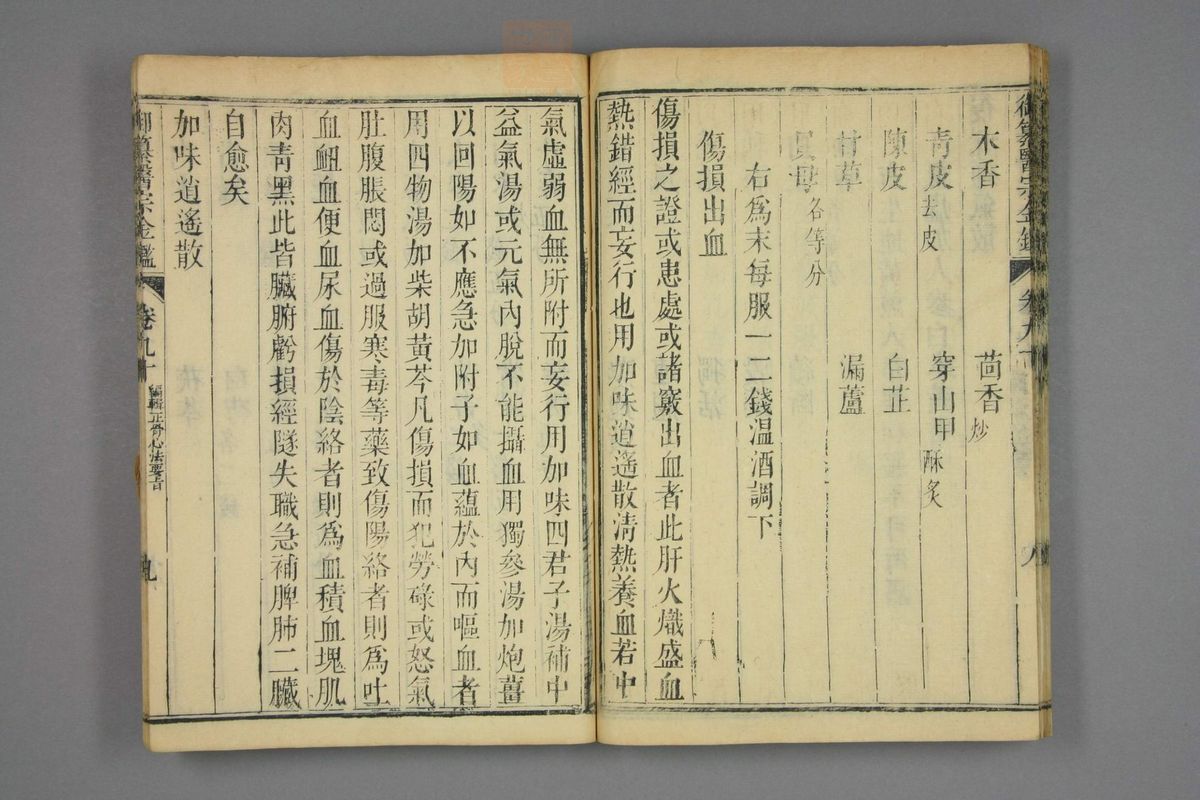 御纂醫宗金鑑 卷九十 八
木香 茴香炒
青皮去皮 穿山甲酥炙
陳皮 白芷
甘草 漏蘆
貝母各等分
右爲末每服一二錢温酒調下
傷損出血
傷損之證或患處或諸竅出血者此肝火熾盛血
熱錯經而妄行也用加味逍遙散清熱養血若中
氣虛弱血無所附而妄行用加味四君子湯補中
益氣湯或元氣內脫不能攝血用獨參湯加炮薑
以回陽如不應急加附子如血蘊於內而嘔血者
用四物湯加柴胡黃芩凡傷損而犯勞碌或怒氣
肚腹脹悶或過服寒毒等藥致傷陽絡者則爲吐
血衂血便血尿血傷於陰絡者則爲血積血塊肌
肉青黑此皆臟腑虧損經隧失職急補脾肺二臟
自愈矣
加味逍遙散
御纂醫宗金鑑 卷九十 編輯正骨心法要旨 九